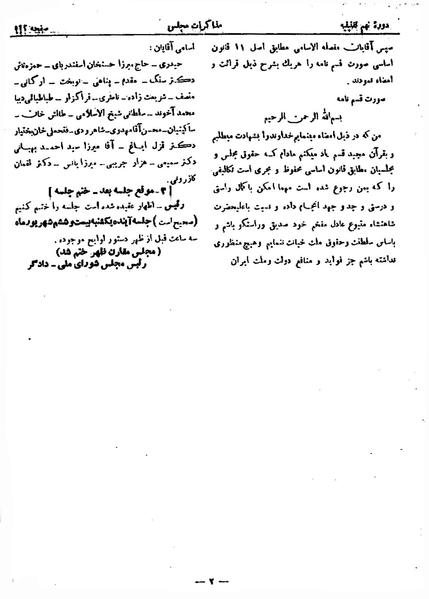 دورهٔ نهم تقنینیه
مذاکرات مجلس
صفحه ۹۱۲
سپس آقایان مفصله الاسامی مطابق اصل ۱۱ قانون
اساسی صورت قسم نامه را هریك بشرح ذیل قرائت و
امضاء نمودند.
صورت قسم نامه
بسم‌الله الرحمن الرحیم
من که در ذیل امضاء مینمایم خداوند را بشهادت میطلبم
و بقرآن مجید قسم یاد میکنم مادام که حقوق مجلس و
مجلسیان مطابق قانون اساسی محفوظ و مجری است تکالیفی
را که بمن رجوع شده است مهما امکن باکمال راستی
و درستی و جد و جهد انجام داده و نسبت باعلیحضرت
شاهنشاه متبوع عادل مفخم خود صدیق وراستگو باشم و
باساس سلطنت وحقوق ملت خیانت ننمایم وهیچ منظوری
نداشته باشم جز فواید و منافع دولت وملت ایران
اسامی آقایان:
حیدری – حاج میرزا حسنخان اسفندیاری – حمزه‌تاش
دکتر سنگ – مقدم – پناهی – نوبخت – اورکانی –
منصف – شریعت زاده – ناصری – قراگزلو – طباطبائی دیبا
محمد آخوند – سلطانی شیخ الاسلامی – طالش خان –
ساکینیان – محسن آقا مهدوی – شاهرودی – فتحعلی خان بختیار
دکتر قزل ایاغ – آقا میرزا سید احمد بهبهانی
دکتر سمیعی – هزار جریبی – میرزا یانس – دکتر لقمان
کازرونی.
[ ۳ – موقع جلسه بعد – ختم جلسه ]
رئیس – اظهار عقیده شده است جلسه را ختم کنیم
(صحیح است) جلسه آینده یکشنبه بیست و ششم شهریور ماه
سه ساعت قبل از ظهر دستور لوایح موجوده.
(مجلس مقارن ظهر ختم شد)
رئیس مجلس شورای ملی – دادگر
– ۲ –